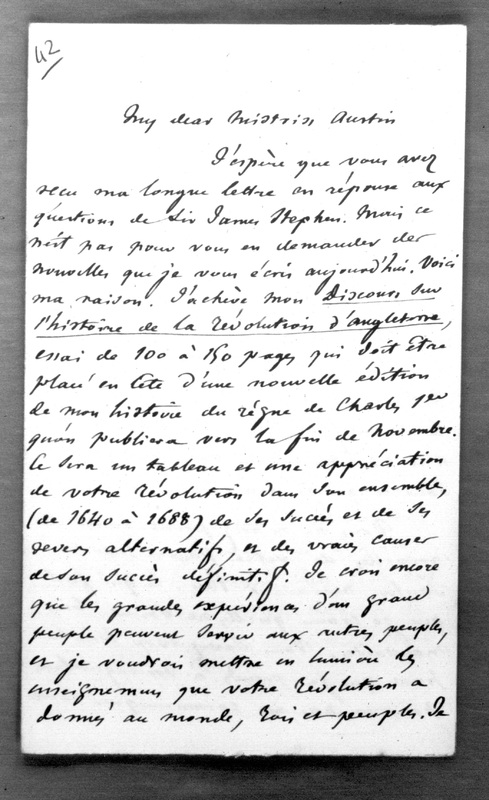 42
My dear Mistriss Austin
J'espère que vous avez
reçu ma longue lettre en réponse aux
questions de Sir James Stephen. Mais ce
n'est pas pour vous en demander des
nouvelles que je vous écris aujourd'hui. Voici
ma raison. J'achève mon Discours sur
l'histoire de la Révolution d'angleterre,
essai de 100 à 150 pages qui doit être
placé en tête d'une nouvelle édition
de mon histoire du règne de Charles 1er
qu'on publiera vers la fin de Novembre.
Ce sera un tableau et une appréciation
de votre révolution dans son ensemble,
(de 1640 à 1688) de ses succès et de ses
revers alternatifs, et des vraies causes
de son succès définitif. Je crois encore
que les grandes expériences d'un grand
peuple peuvent servir aux autres peuples,
et je voudrois mettre en lumière les
enseignemens que votre Révolution a
donnés au monde, rois et peuples. Je